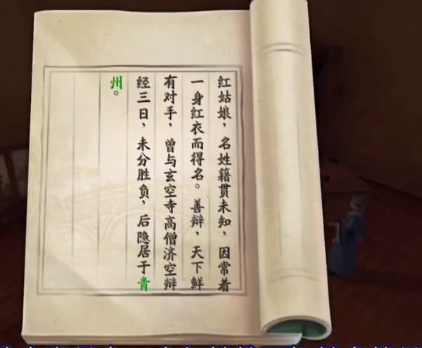 红姑娘，名姓籍贯未知，因常着
一身红衣而得名。善辩，天下鲜
有对手，曾与玄空寺高僧济空辩
经三日，未分胜负，后隐居于青
州。